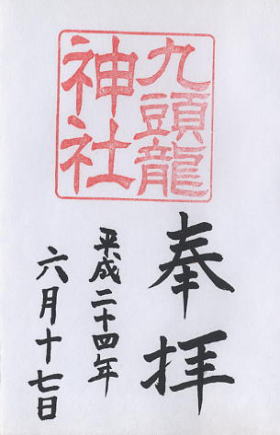 九頭龍
神社
奉拝
平成二十四年
六月十七日